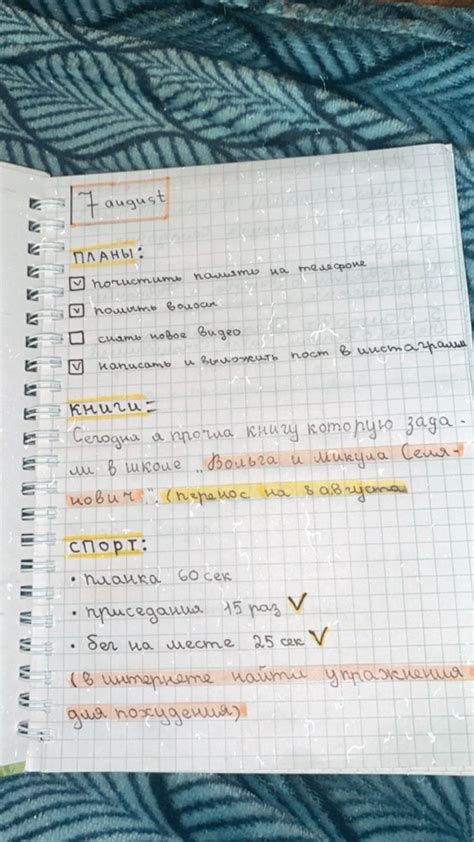 7 august
ПЛАНЫ:
почистить память на телефоне
помыть волосы
снять новое видео
написать и выложить пост в инстаграмм
КНИГИ=
Сегодня я прочла книгу которую зада-
ли в школе „Вольга и Микула Селя-
нович". (перенос на 8 августа
СПОРТ:
• планка 60 сек
• приседания 15 раз V
• бег на месте 25 сек V
(в интернете найти упражнения
для похудения)